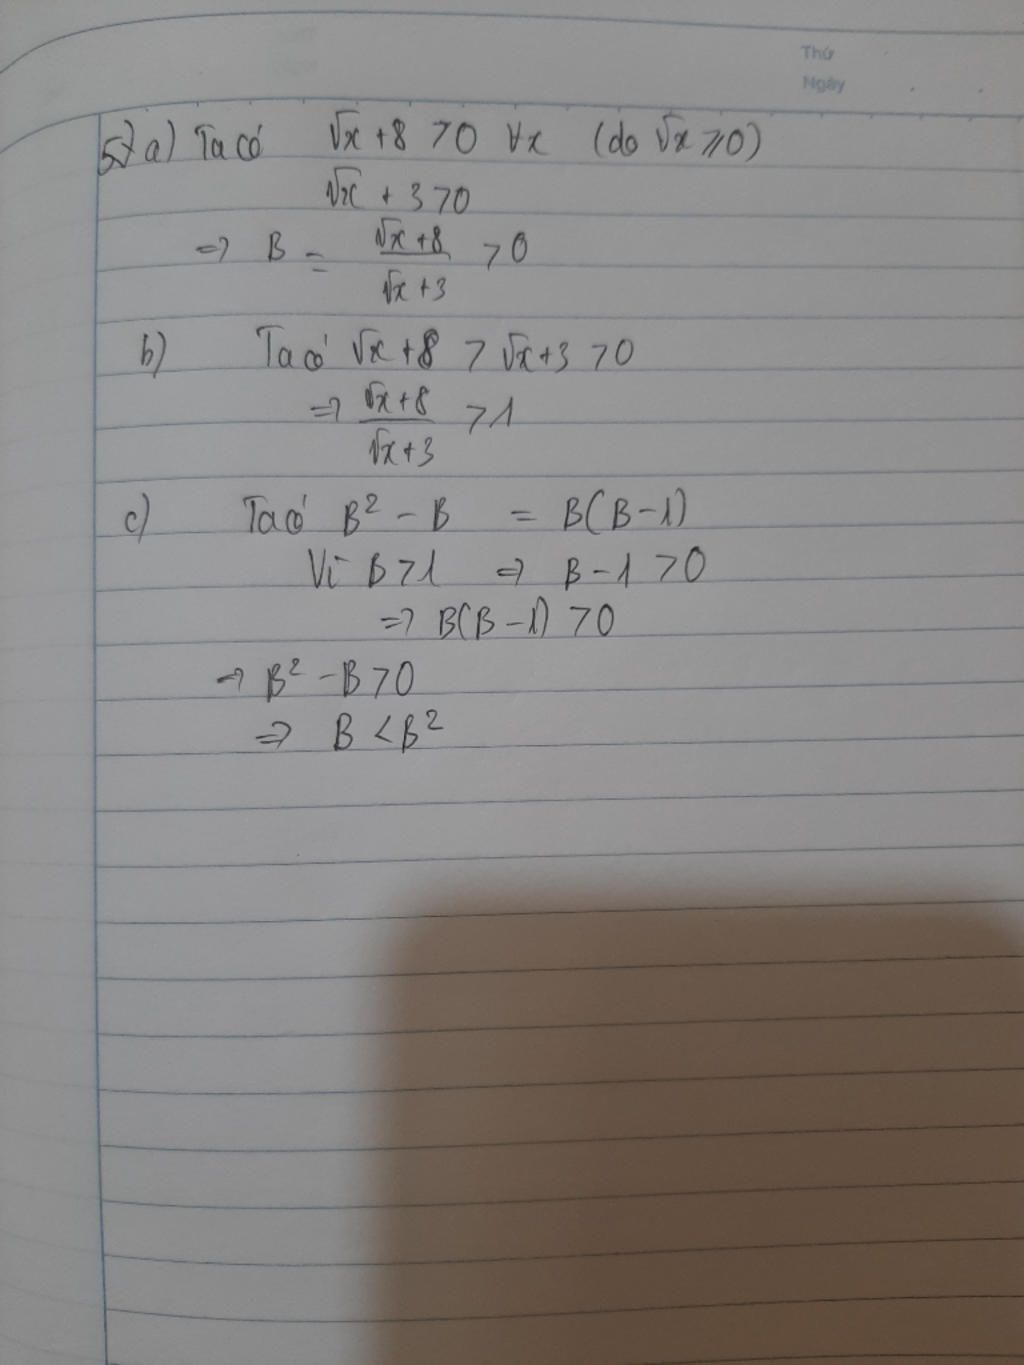 Thứ
Ngày
57 a) Ta có √x + 8 > 0 ∀x (do √x ⩾ 0)
√x + 3 > 0
=> B = (√x + 8)/(√x + 3) > 0
b) Ta có √x + 8 > √x + 3 > 0
=> (√x + 8)/(√x + 3) > 1
c) Ta có B² - B = B(B - 1)
Vì B > 1 => B - 1 > 0
=> B(B - 1) > 0
=> B² - B > 0
=> B < B²